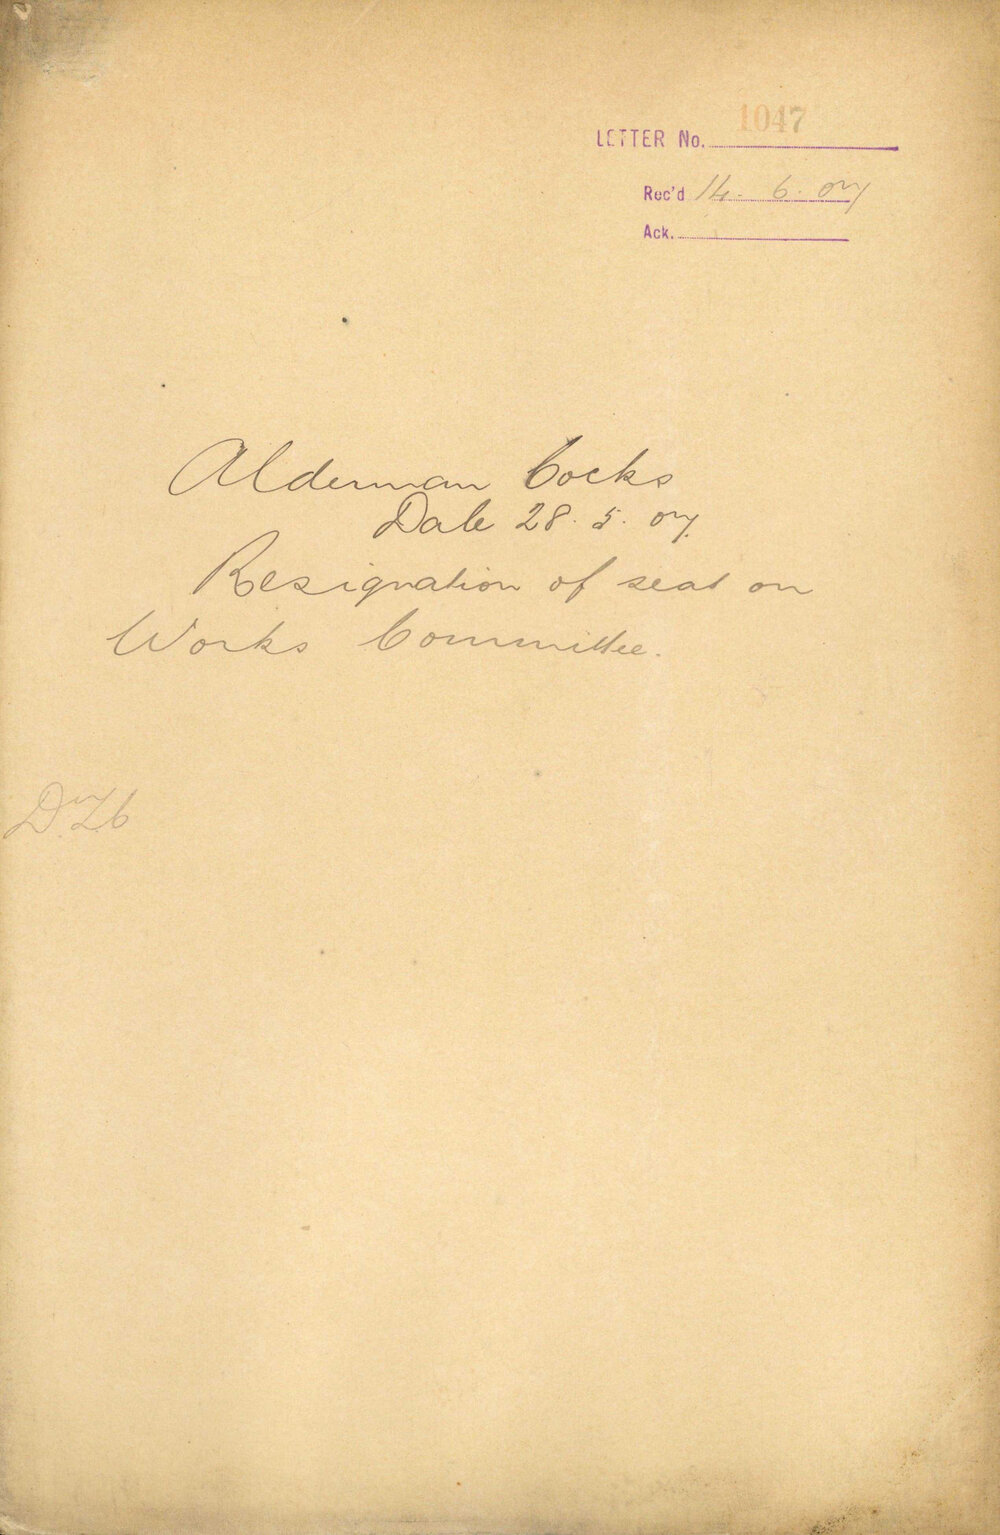 1047
LETTER No.
Rec'd 14. 6. 07
Ack.
Alderman Cocks
Date 28. 5. 07.
Resignation of seat on
Works Committee.